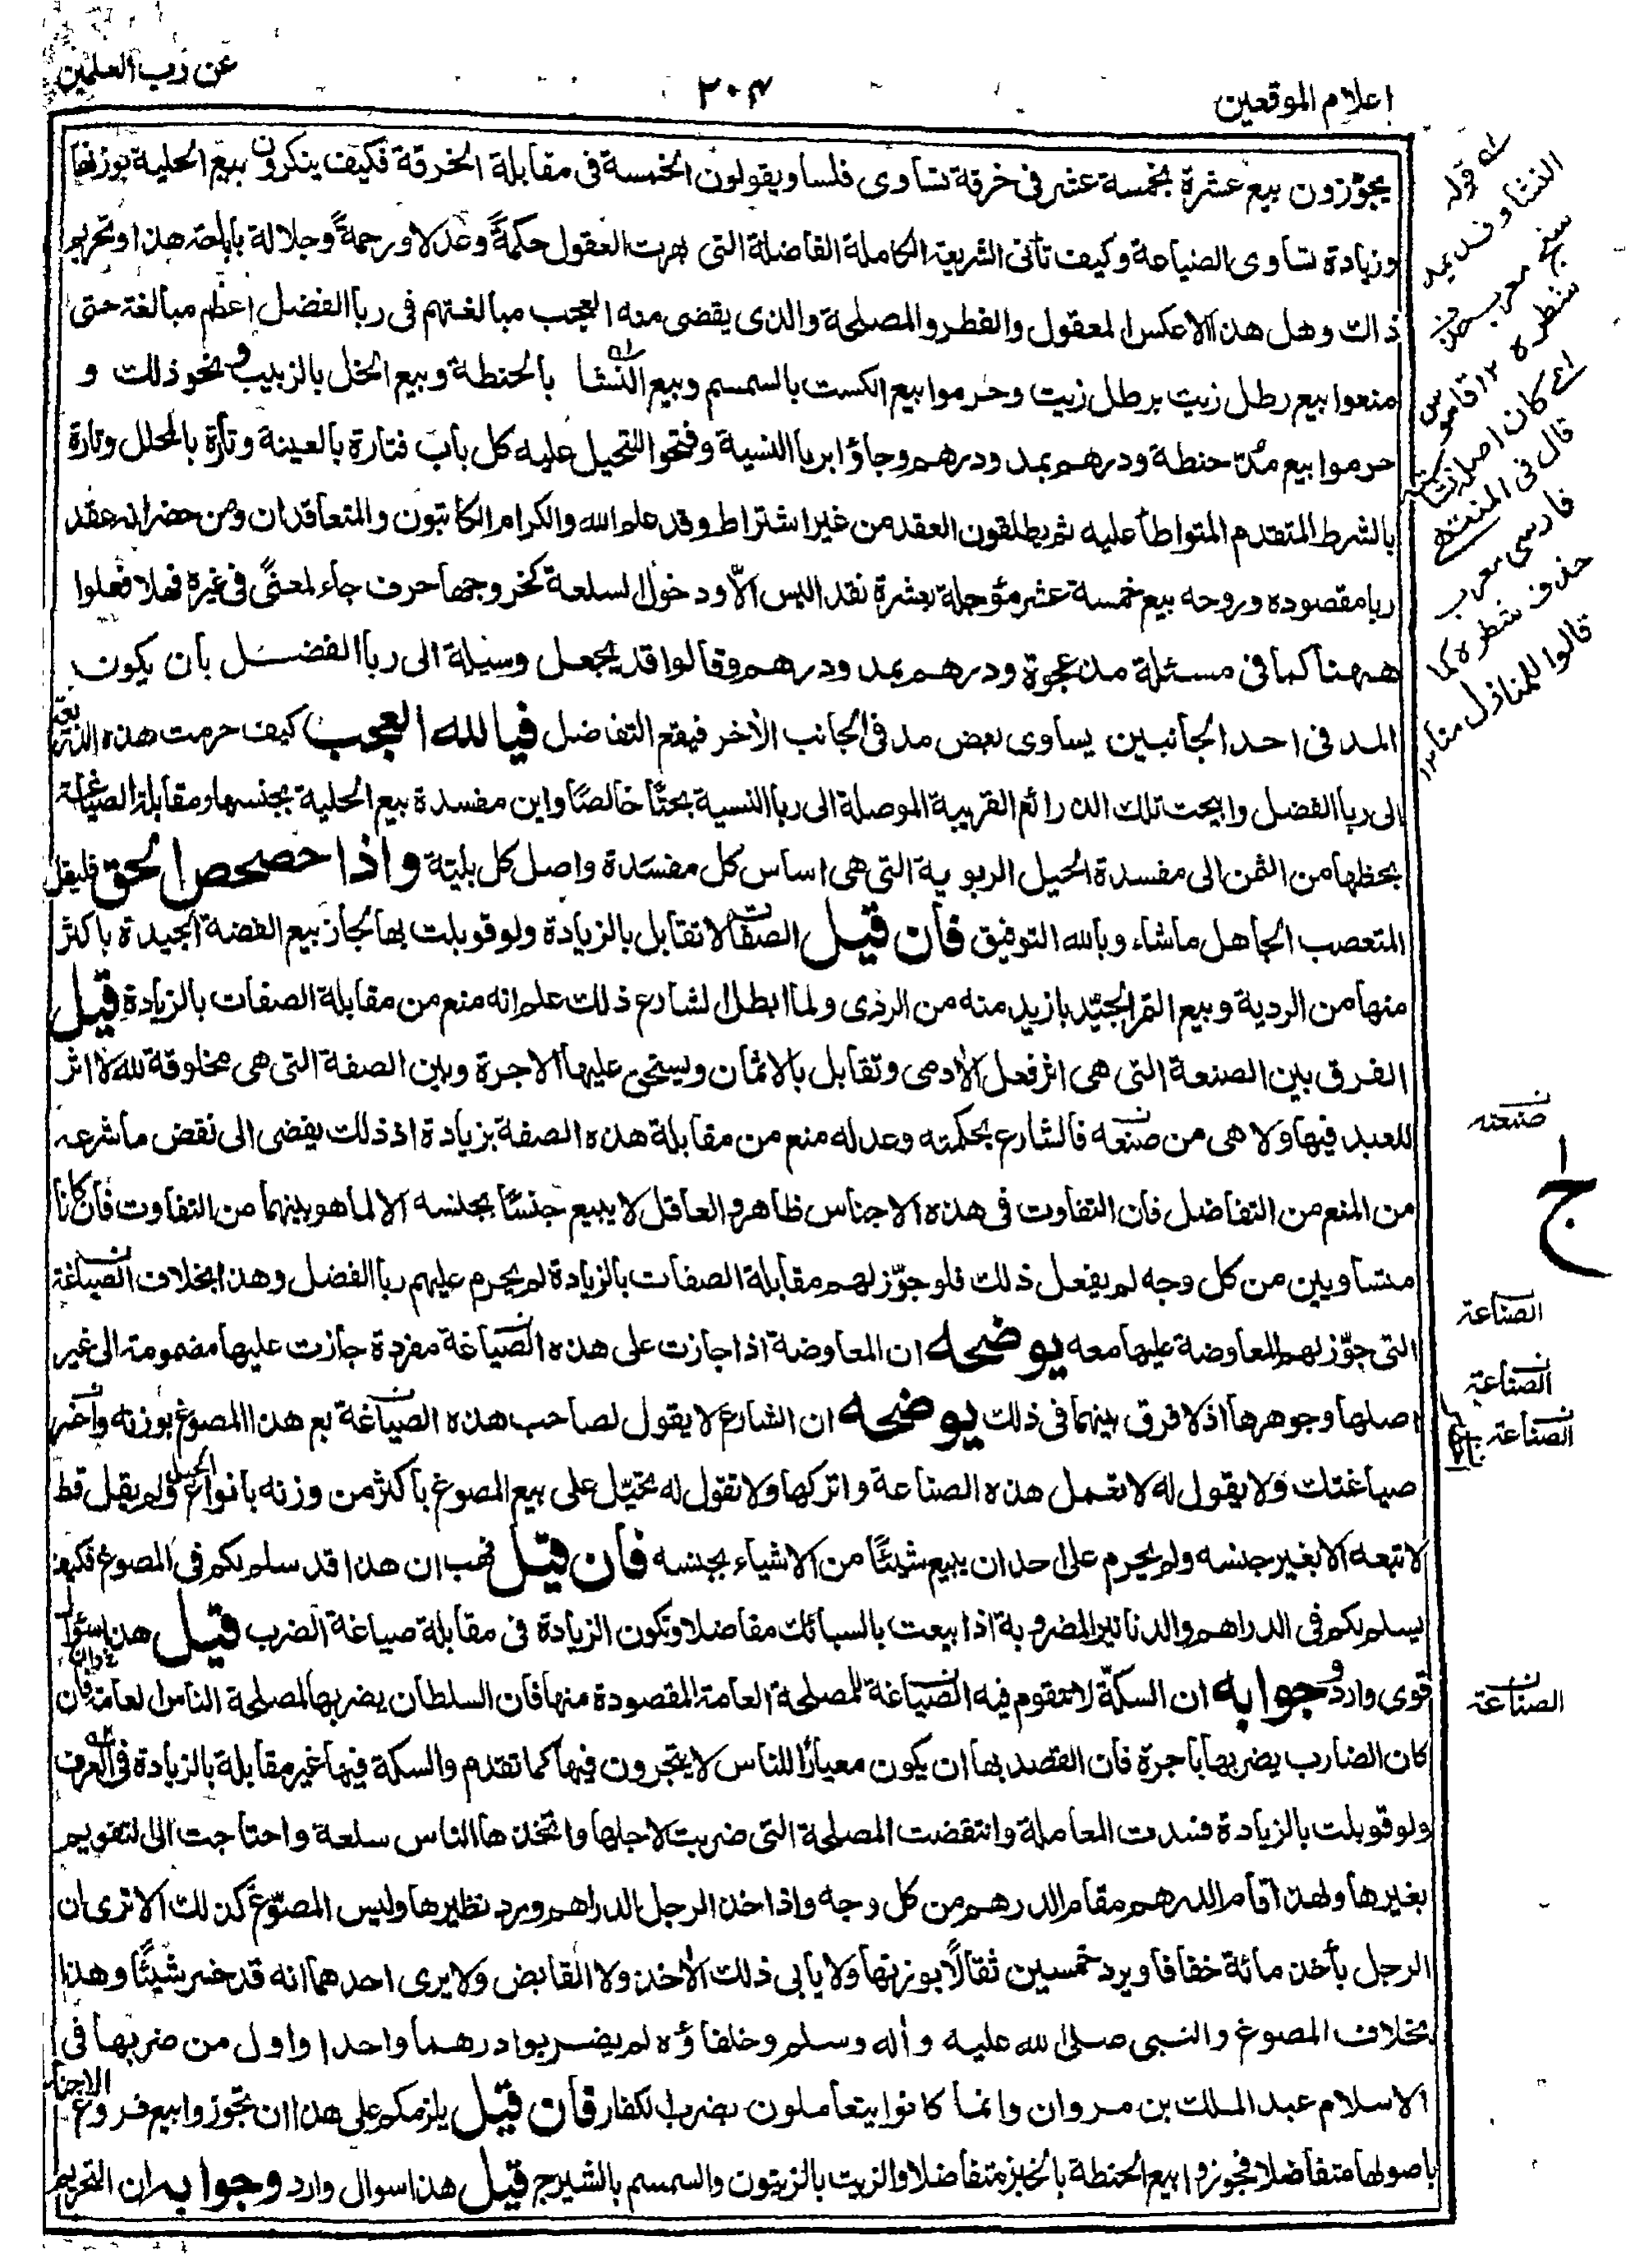 اعلام الموقعين
٢٠٤
عن رب العلمين
يجوّزون بيع عشرة بخمسة عشر فى خرقة تساوى فلسا ويقولون الخمسة فى مقابلة الخرقة فكيف ينكرون بيع الحلية بوزنها
وزيادة تساوى الصياغة وكيف تأتى الشريعة الكاملة الفاضلة التى بهرت العقول حكمةً وعدلا ورحمةً وجلالة باباحة هذا وتحريم
ذالك وهل هذا الا عكس المعقول والفطر والمصلحة والذى يقضى منه العجب مبالغتهم فى ربا الفضل اعظم مبالغة حتى
منعوا بيع رطل زيت برطل زيت وحرموا بيع الكسب بالسمسم وبيع النشا بالحنطة وبيع الخل بالزبيب ونحو ذلك و
حرموا بيع مُدّ حنطة ودرهم بمد ودرهم وجاؤا بربا النسية وفتحوا التحيل عليه كل باب فتارة بالعينة وتارة بالمحلل وتارة
بالشرط المتقدم المتواطأ عليه ثم يطلقون العقد من غير اشتراط وقد علم الله والكرام الكاتبون والمتعاقدان ومن حضر انه عقد
ربا مقصوده وروحه بيع خمسة عشر مؤجلة بعشرة نقدا ليس الّا ودخول السلعة كخروجها حرف جاء لمعنًى فى غيره فهلا فعلوا
ههنا كما فى مسئلة مد عجوة ودرهم بمد ودرهم وقالوا قد يجعل وسيلة الى ربا الفضل بان يكون
المد فى احد الجانبين يساوى بعض مد فى الجانب الأخر فيقع التفاضل فيا لله العجب كيف حرمت هذه الذريعة
الى ربا الفضل وابيحت تلك الذرائع القريبة الموصلة الى ربا النسية بحتًا خالصًا واين مفسدة بيع الحلية بجنسها ومقابلة الصياغة
بحظها من الثمن الى مفسدة الحيل الربوية التى هى اساس كل مفسدة واصل كل بليّة واذا حصحص الحق فليقل
المتعصب الجاهل ماشاء وبالله التوفيق فان قيل الصفات لا تقابل بالزيادة ولو قوبلت بها لجاز بيع الفضة الجيدة باكثر
منها من الردية وبيع التمر الجيّد بازيد منه من الردى ولما ابطل الشارع ذلك علم انه منع من مقابلة الصفات بالزيادة قيل
الفرق بين الصنعة التى هى اثر فعل الأدمى وتقابل بالاثمان ويستحق عليها الاجرة وبين الصفة التى هى مخلوقة لله لا اثر
للعبد فيها ولا هى من صنعه فالشارع بحكمته وعدله منع من مقابلة هذه الصفة بزيادة اذ ذلك يفضى الى نقض ما شرعه
من المنع من التفاضل فان التفاوت فى هذه الاجناس ظاهر والعاقل لا يبيع جنسًا بجنسه الا لما هو بينهما من التفاوت فان كانا
متساويين من كل وجه لم يفعل ذلك فلو جوّز لهم مقابلة الصفات بالزيادة لم يحرم عليهم ربا الفضل وهذا بخلاف الصياغة
التى جوّز لهم المعاوضة عليها معه يوضحه ان المعاوضة اذا جازت على هذه الصياغة مفردة جازت عليها مضمومة الى غير
اصلها وجوهرها اذ لا فرق بينهما فى ذلك يوضحه ان الشارع لا يقول لصاحب هذه الصياغة بع هذا المصوغ بوزنه واخسر
صياغتك ولا يقول له لا تعمل هذه الصناعة واتركها ولا تقول له تحيّل على بيع المصوغ باكثر من وزنه بانواع الحيل ولم يقل قط
لا تبعه الا بغير جنسه ولم يحرم على احد ان يبيع شيئًا من الاشياء بجنسه فان قيل فهب ان هذا قد سلم لكم فى المصوغ فكيف
يسلم لكم فى الدراهم والدنانير المضروبة اذا بيعت بالسبائك مفاضلا وتكون الزيادة فى مقابلة صياغة الضرب قيل هذا سؤال
قوى وارد وجوابه ان السكّة لا تتقوم فيه الصياغة للمصلحة العامة المقصودة منها فان السلطان يضربها لمصلحة الناس العامة فان
كان الضارب يضربها باجرة فان القصد بها ان يكون معيارًا للناس لا يتجرون فيها كما تقدم والسكة فيها غير مقابلة بالزيادة فى العرف
ولو قوبلت بالزيادة فسدت المعاملة وانتقضت المصلحة التى ضربت لاجلها واتخذها الناس سلعة واحتاجت الى التقويم
بغيرها ولهذا قام الدرهم مقام الدرهم من كل وجه واذا اخذ الرجل الدراهم ورد نظيرها وليس المصوغ كذلك الا ترى ان
الرجل يأخذ مائة خفافا ويرد خمسين ثقالًا بوزنها ولا يابى ذلك الأخذ ولا القابض ولا يرى احدهما انه قد خسر شيئًا وهذا
بخلاف المصوغ والنبى صلى الله عليه وأله وسلم وخلفاؤه لم يضربوا درهما واحدا واول من ضربها فى
الاسلام عبد الملك بن مروان وانما كانوا يتعاملون بضرب الكفار فان قيل يلزمكم على هذا ان تجوّزوا بيع فروع الاجناس
باصولها متفاضلا فجوزوا بيع الحنطة بالخبز متفاضلا والزيت بالزيتون والسمسم بالشيرج قيل هذا سوال وارد وجوابه ان التحريم
له قوله
النشا وقد يمد
معرب حذف
شطره ١٢ قاموس
اى كان اصله نشا
قال فى المنتهى
فارسى معرب
حذف شطره كما
قالوا للمنازل منا ١٢
صنعته
ج
الصناعة
الصناعة
الصناعة
الصناعة